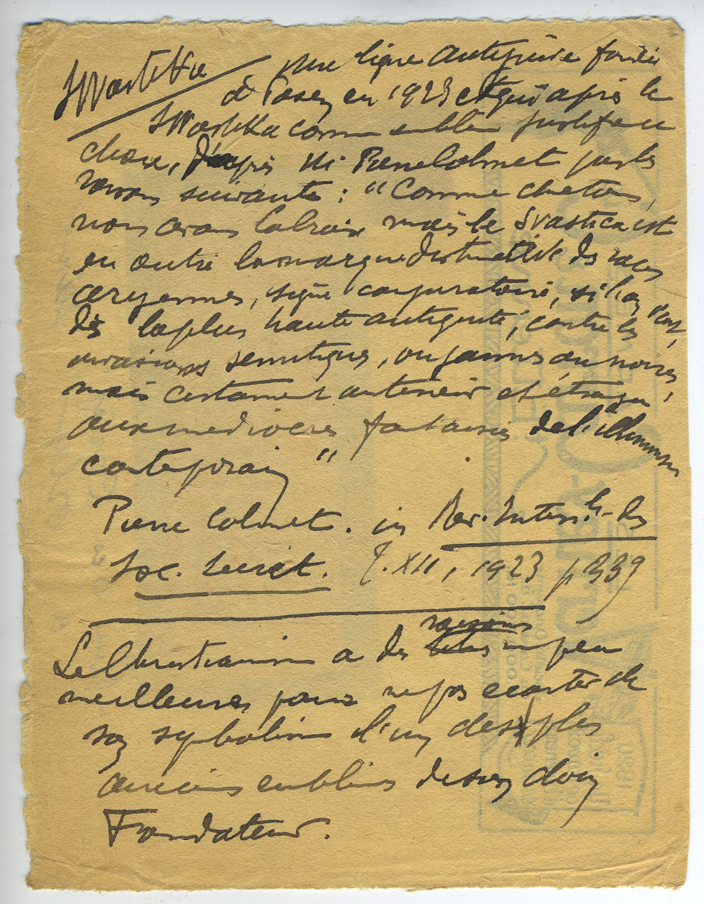 Swastika une ligue antijuive fondée
à Posen en 1923 et qui a pris le
Swastika comme emblème justifie ce
choix, d'après M. Pierre Colmet par les
raisons suivante : "Comme chetiens,
nous avons la croix mais le Svastica est
en outre la marque distinctive des races
aryennes, signe conjuratoire, si l'on veut,
dès la plus haute antiquité, contre les
invasions sémitiques, ou jaunes ou noires,
mais certament antérieur et étranger
aux médiocres fantaisies de l'illuminisme
contemporain"
Pierre Colmet. in Rev. Intern.le des
Soc. Secrèt. T. XII, 1923 p 339
Le Christianisme a des raisons un peu
meilleures pour ne pas ecarter de
son symbolisme l'un des plus
anciens emblèmes de son divin
Fondateur.